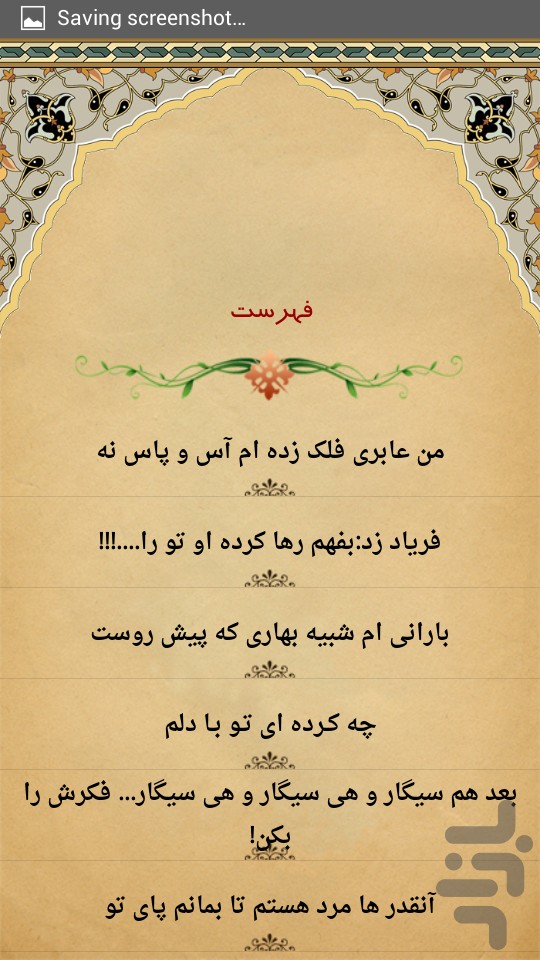 Saving screenshot...
فهرست
من عابری فلک زده ام آس و پاس نه
فریاد زد:بفهم رها کرده او تو را....!!!
بارانی ام شبیه بهاری که پیش روست
چه کرده ای تو با دلم
بعد هم سیگار و هی سیگار و هی سیگار... فکرش را
بکن!
آنقدر ها مرد هستم تا بمانم پای تو
بازار